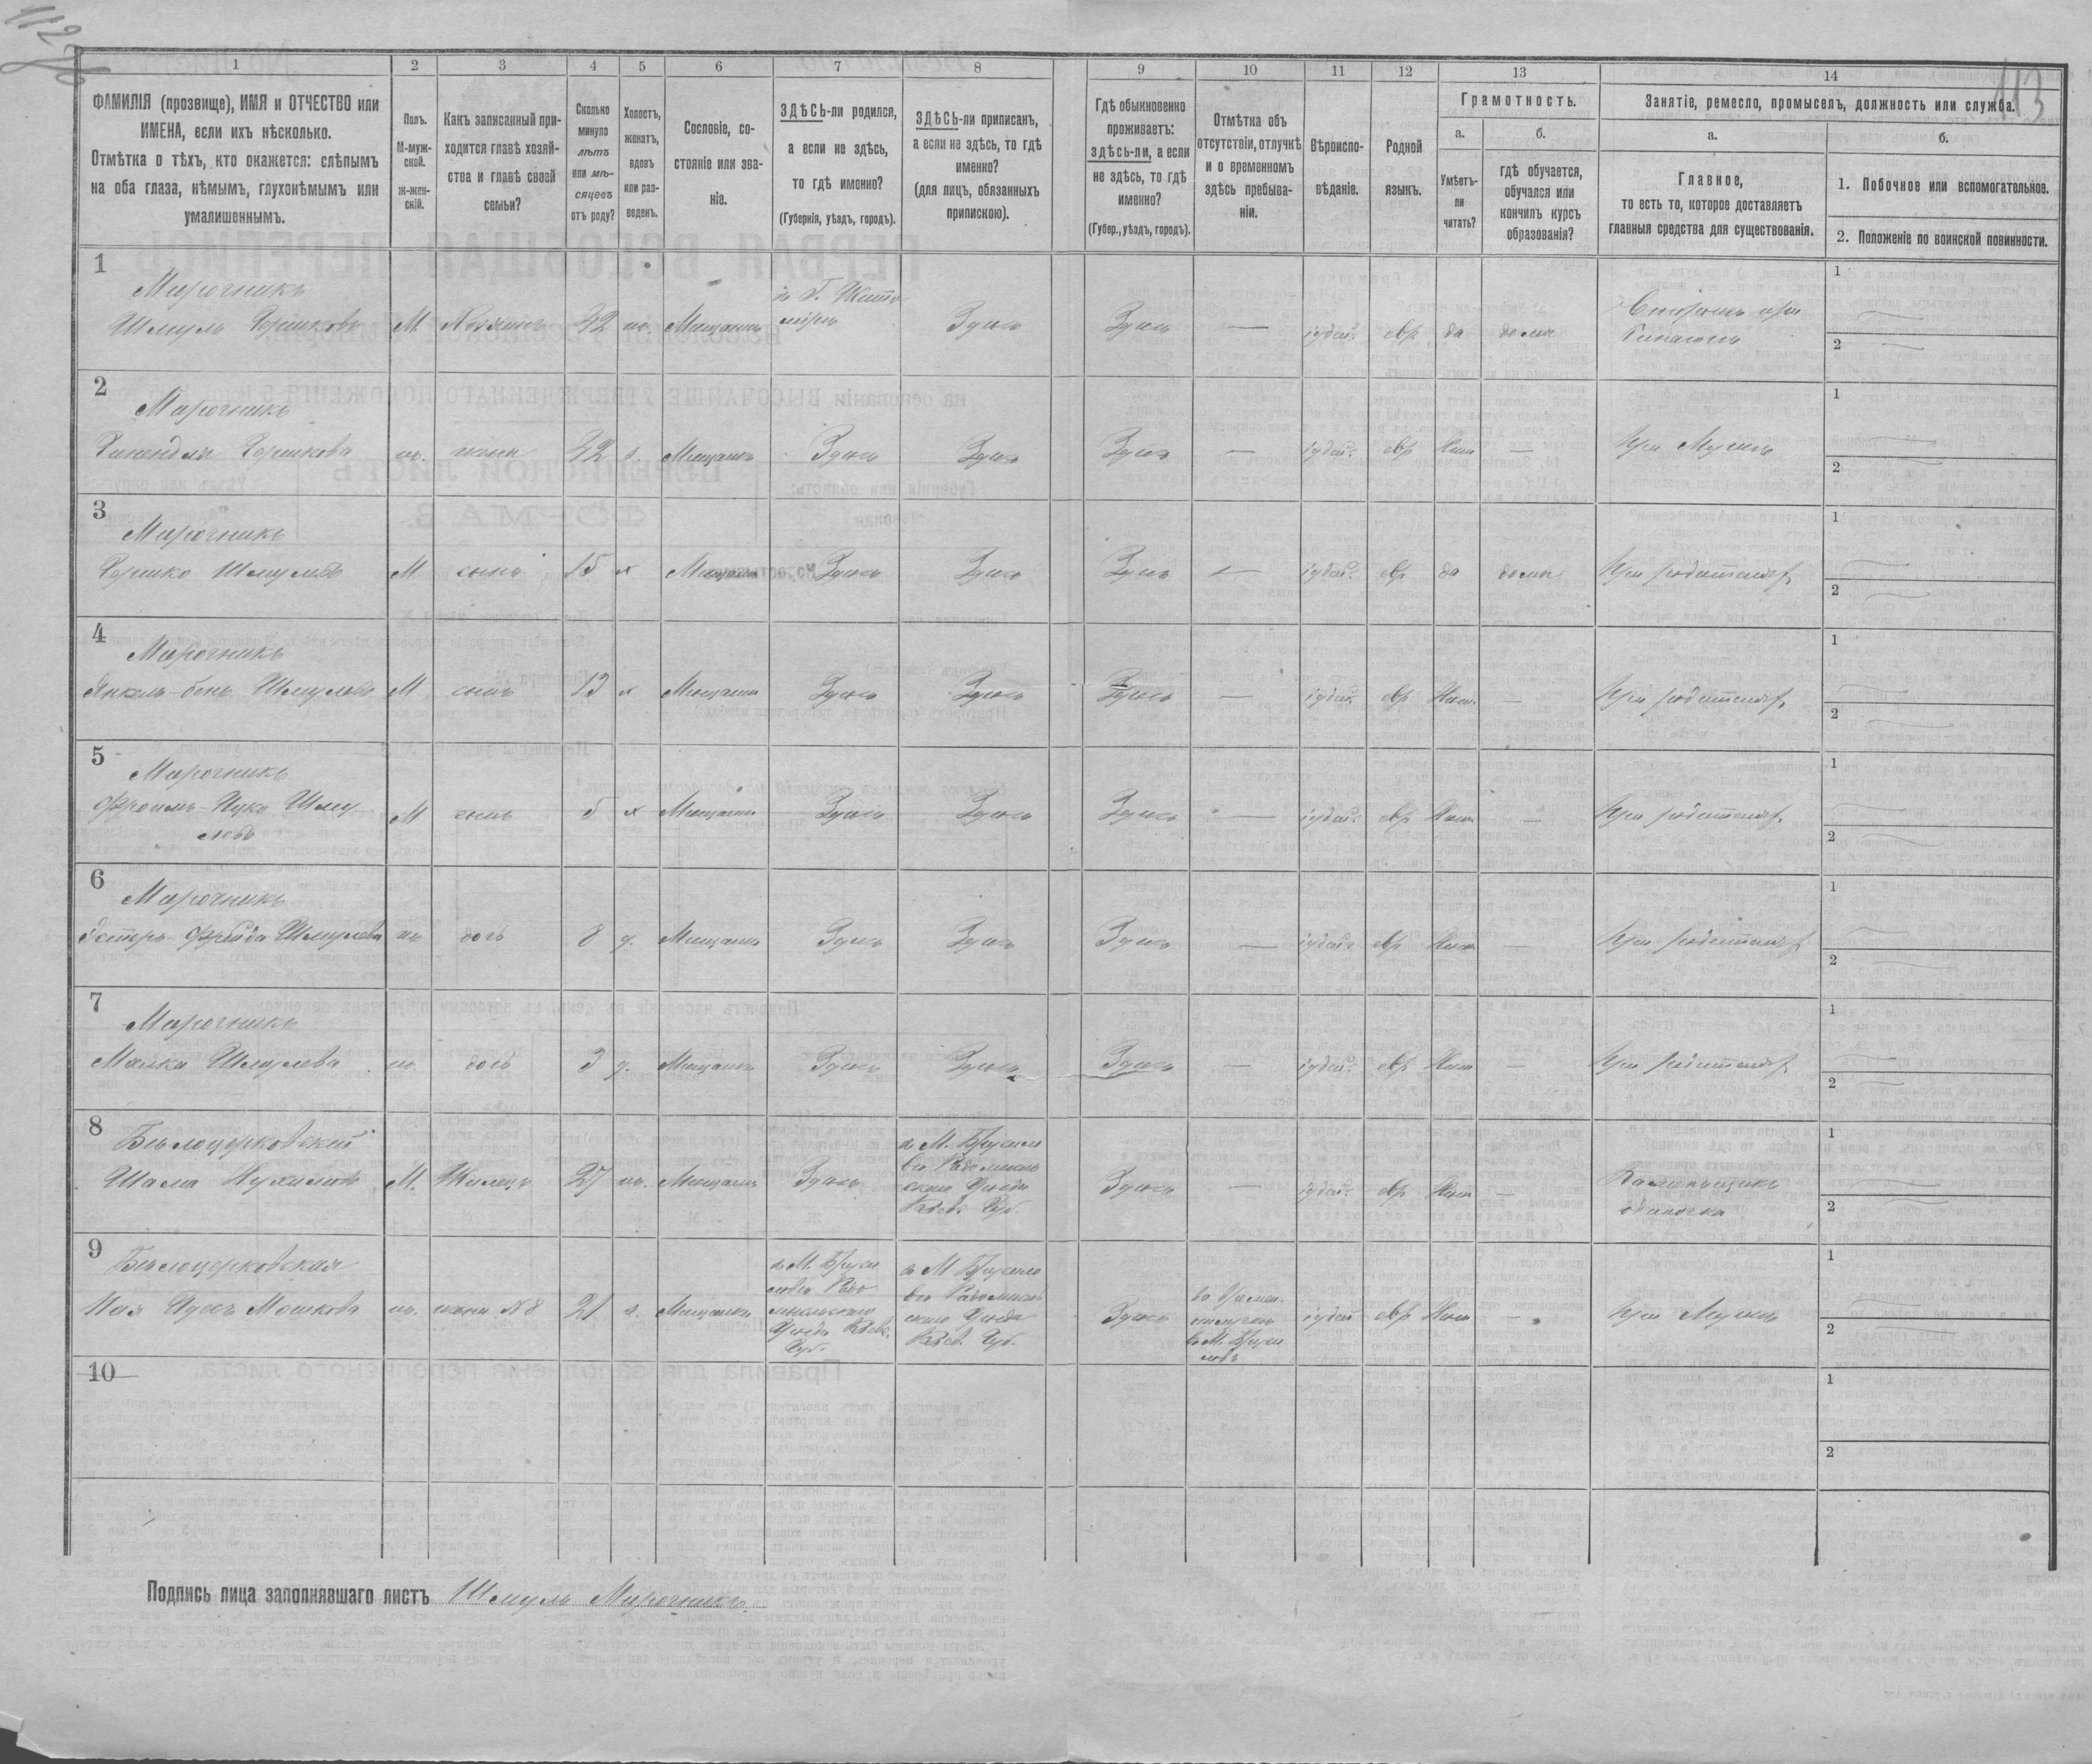 113
1
2
3
4
5
6
7
8
9
10
11
12
13
14
ФАМИЛІЯ (прозвище), ИМЯ и ОТЧЕСТВО или
ИМЕНА, если ихъ нѣсколько.
Отмѣтка о тѣхъ, кто окажется: слѣпымъ
на оба глаза, нѣмымъ, глухонѣмымъ или
умалишеннымъ.
Полъ.
М-муж-
ской.
ж-жен-
скій.
Какъ записанный при-
ходится главѣ хозяй-
ства и главѣ своей
семьи?
Сколько
минуло
лѣтъ
или мѣ-
сяцевъ
отъ роду?
Холостъ,
женатъ,
вдовъ
или раз-
веденъ.
Сословіе, со-
стояніе или зва-
ніе.
ЗДѢСЬ-ли родился,
а если не здѣсь,
то гдѣ именно?
(Губернія, уѣздъ, городъ).
ЗДѢСЬ-ли приписанъ,
а если не здѣсь, то гдѣ
именно?
(для лицъ, обязанныхъ
припискою).
Гдѣ обыкновенно
проживаетъ:
здѣсь-ли, а если
не здѣсь, то гдѣ
именно?
(Губер., уѣздъ, городъ).
Отмѣтка объ
отсутствіи, отлучкѣ
и о временномъ
здѣсь пребыва-
ніи.
Вѣроиспо-
вѣданіе.
Родной
языкъ.
Грамотность.
а.
Умѣетъ-
ли
читать?
б.
гдѣ обучается,
обучался или
кончилъ курсъ
образованія?
Занятіе, ремесло, промыселъ, должность или служба.
а.
Главное,
то есть то, которое доставляетъ
главныя средства для существованія.
б.
1. Побочное или вспомогательное.
2. Положеніе по воинской повинности.
1
Марочникъ
Шмуль Гершковъ М Хозяинъ 42 ж. Мещанинъ
въ Г. Жито
мірѣ
Здѣсь Здѣсь — іудей. евр да дома
Сторожъ при
1
2
2
Марочникъ
Гершкова ж. жена 42 з. Мещанка Здѣсь Здѣсь Здѣсь — іудей. евр Нѣтъ — При Мужѣ
1
2
3
Марочникъ
Гершко Шмулевъ М сынъ 15 х Мещанинъ Здѣсь Здѣсь Здѣсь — іудей. евр да дома При родителяхъ
1
2
4
Марочникъ
Янкель-бенъ Шмулевъ М сынъ 13 х Мещанинъ Здѣсь Здѣсь Здѣсь — іудей евр Нѣтъ — При родителяхъ
1
2
5
Марочникъ
Фроимъ-Ицко Шму
левъ
М сынъ 5 х Мещанинъ Здѣсь Здѣсь Здѣсь — іудей. евр Нѣтъ — При родителяхъ
1
2
6
Марочникъ
Эстеръ-Фрейда Шмулева ж дочь 8 д. Мещанка Здѣсь Здѣсь Здѣсь — іудей евр Нѣтъ — При родителяхъ
1
2
7
Марочникъ
Малка Шмулева ж. дочь 3 д. Мещанка Здѣсь Здѣсь Здѣсь — іудей. евр Нѣтъ — При родителяхъ
1
2
8
Бѣлоцерковский
Нухимовъ М. Жилецъ 27 ж. Мещанинъ Здѣсь
въ М. Брусило
вѣ Радомысль
скаго Уѣзда
Кіев. Губ.
Здѣсь — іудей. евр Нѣтъ —
одиночка
1
2
9
Бѣлоцерковская
Мошкова ж. жена №8 21 з. Мещанка
въ М. Бруси
ловѣ Радо
мысльскаго
Уѣзда Кіевс.
Губ.
въ М Брусило
вѣ Радомысль
скаго Уѣзда
Кіев. Губ.
Здѣсь
во Времен.
отлучкѣ
въ М. Бруси
ловѣ
іудей евр Нѣтъ — При Мужѣ
1
2
10
1
2
Подпись лица заполнявшаго листъ Шмуль Марочникъ